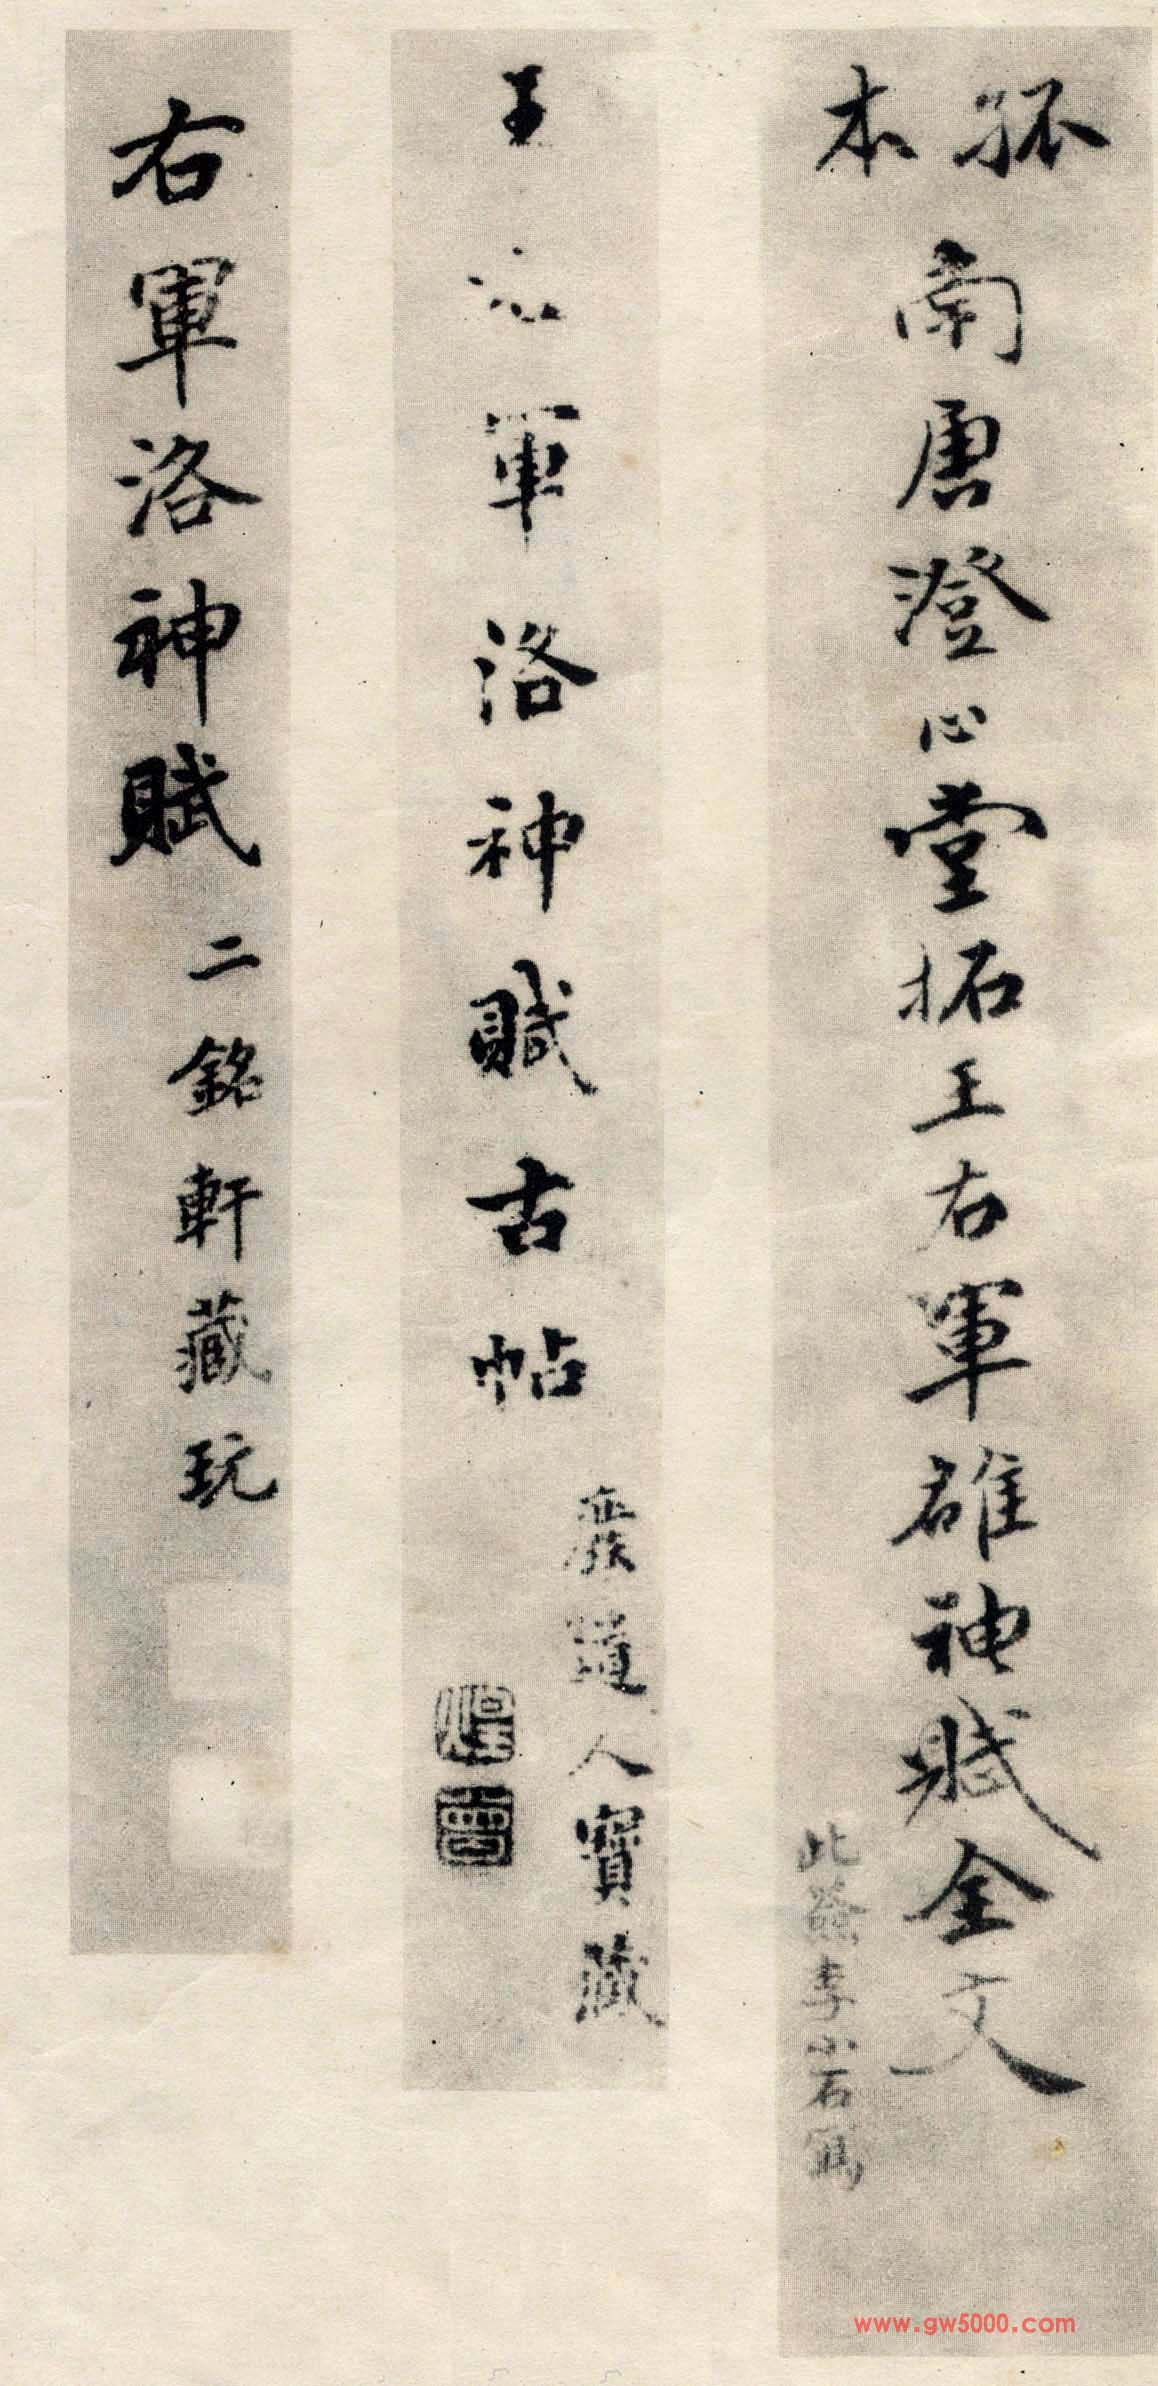 孤本
南唐澄心堂拓王右軍雒神賦全文
此簽李小石寫
王軍洛神賦古帖
道人寶藏
右軍洛神賦
二銘軒藏玩
www.gw5000.com